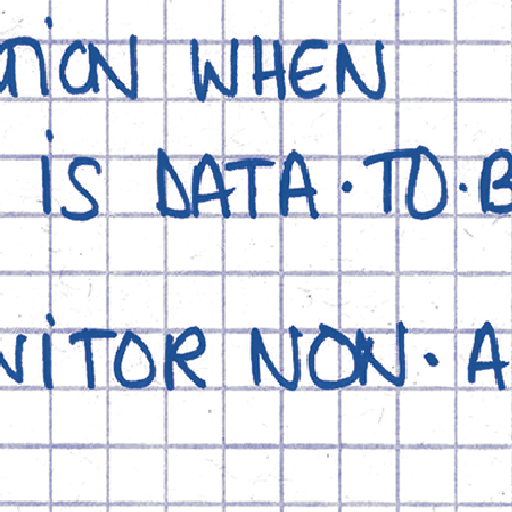 ation WHEN
is DATA·TO·B
NiTOR NON·A